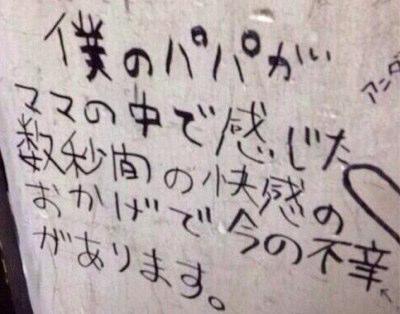 僕のパパが
ママの中で感じた
数秒間の快感の
おかげで今の不幸
があります。
アング